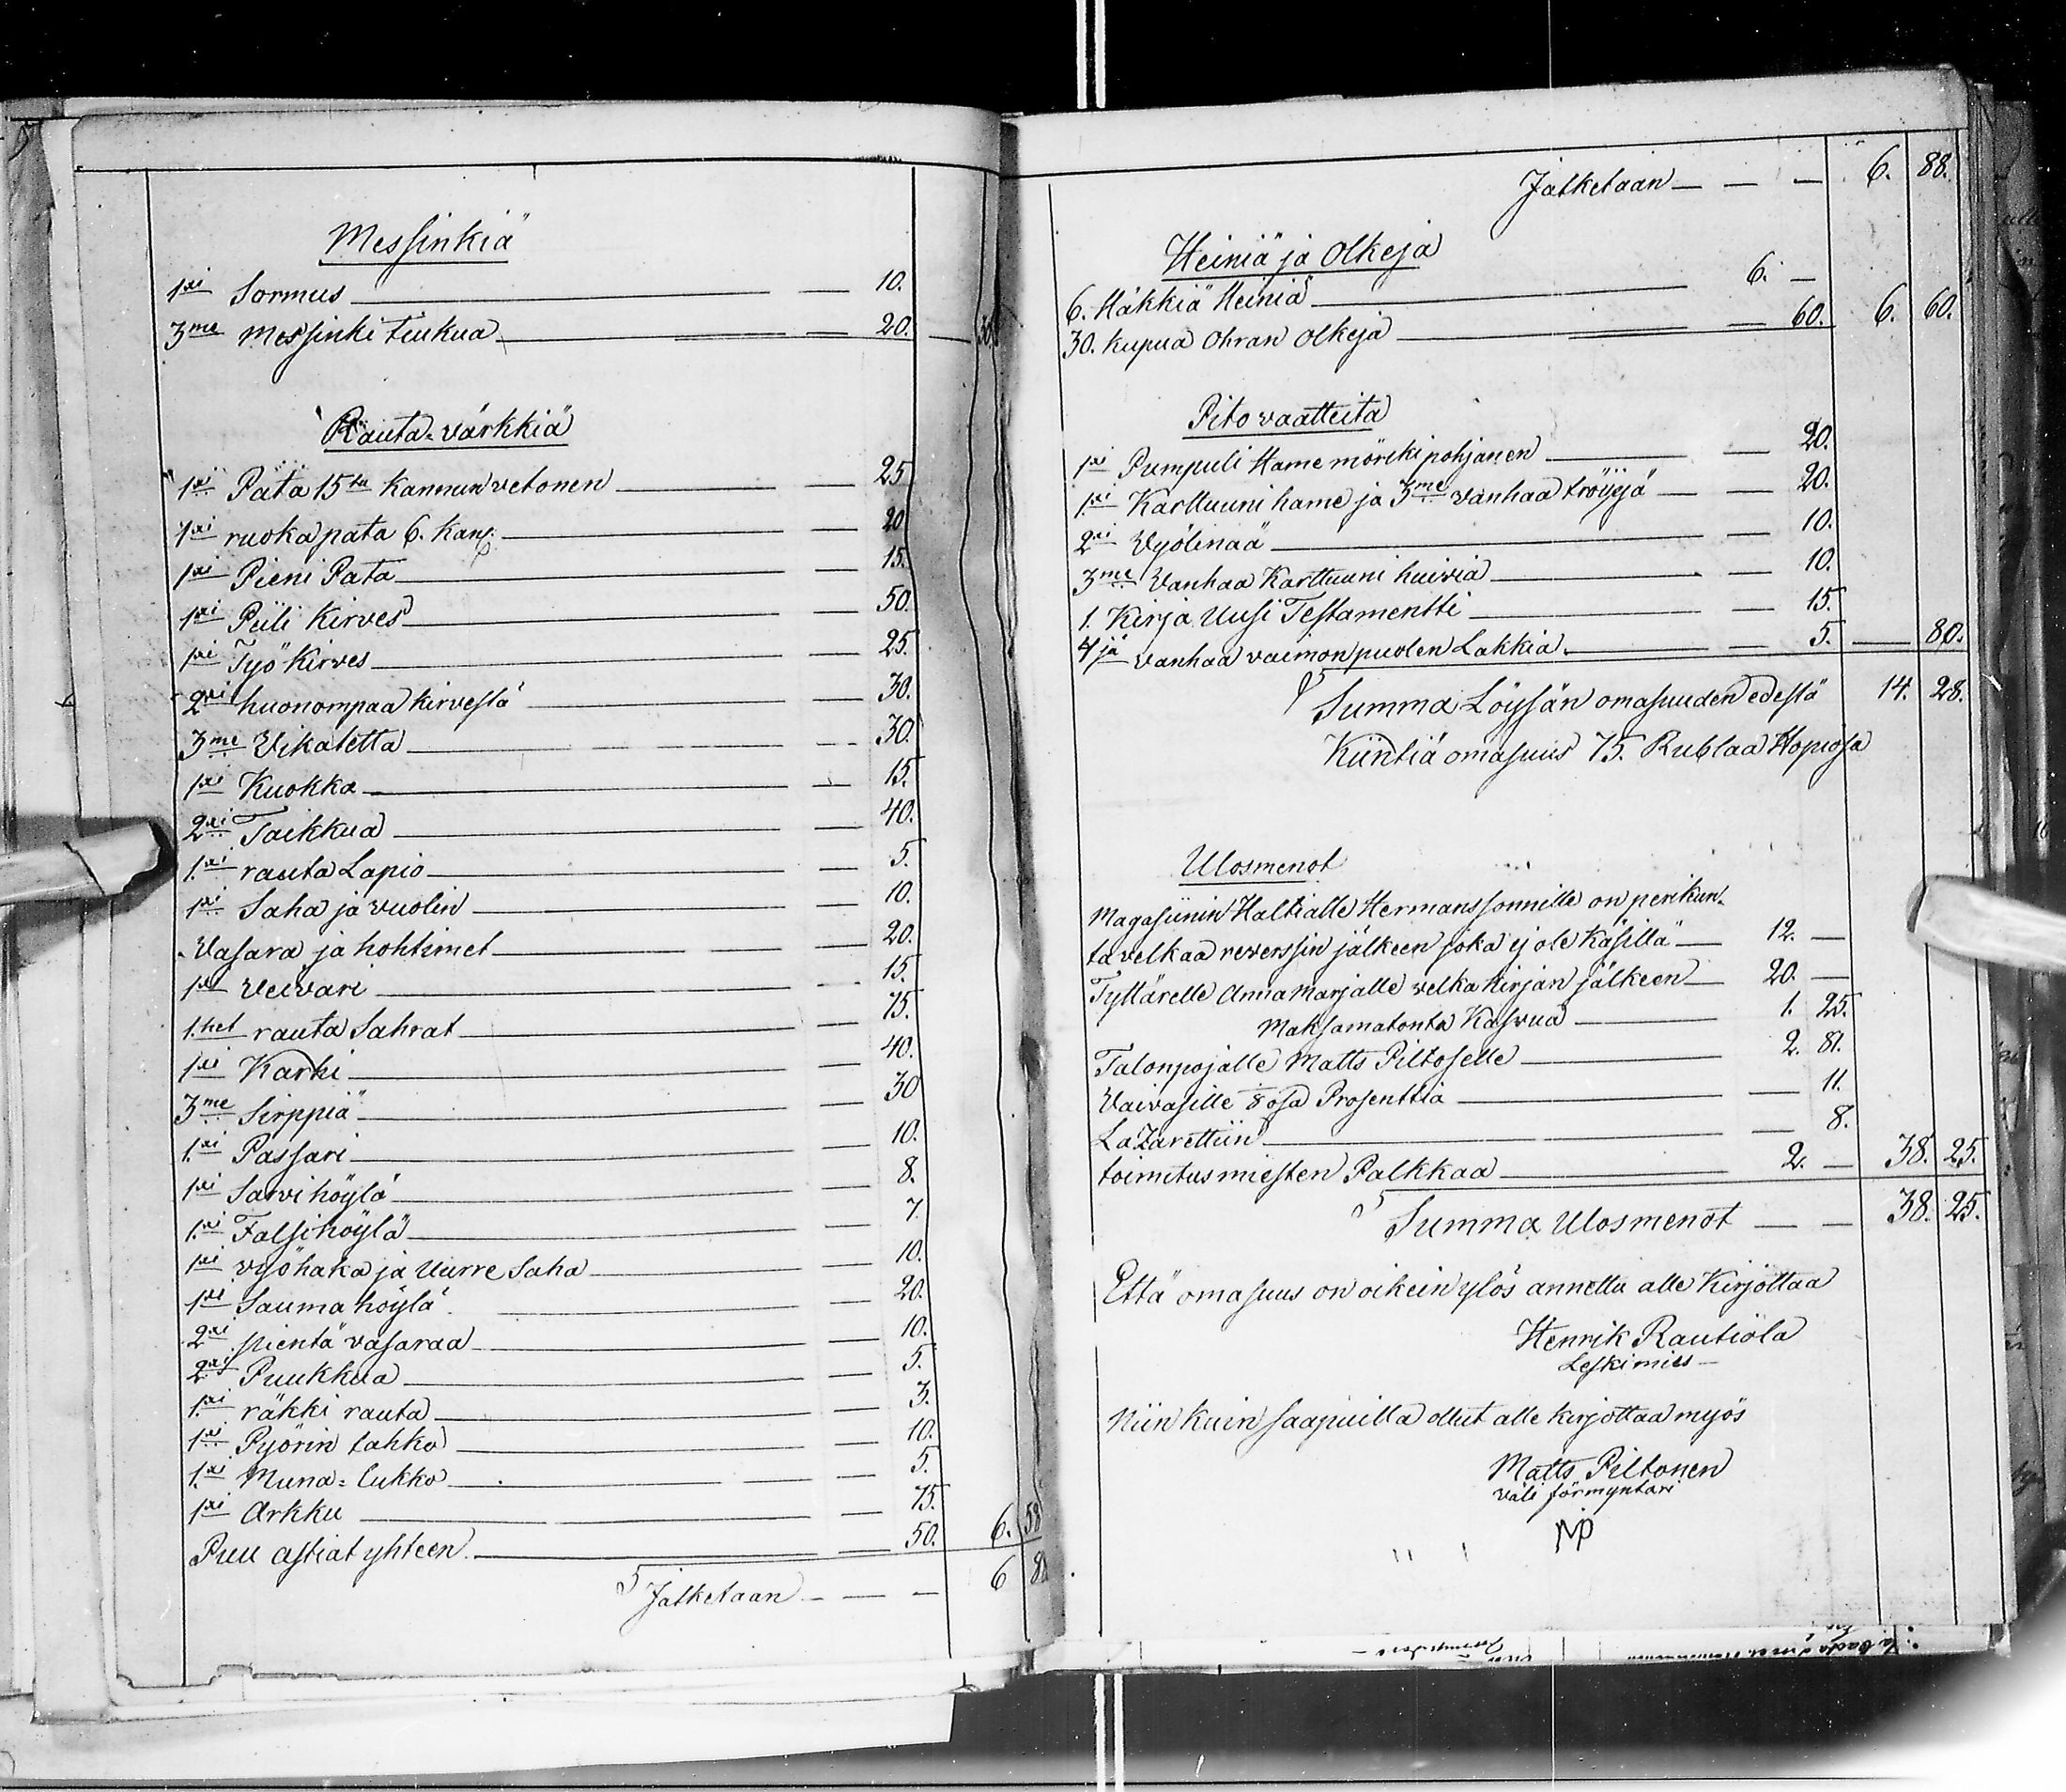 Messinkiä
1xi Sormus — 10.
3me Messinki tiukua — 20. — 30
Rauta-värkkiä
1xi Pata 15ta Kannun vetonen — 25
1xi ruoka pata 6. Kan: — 20
1xi Pieni Pata — 15.
1xi Piili Kirves — 50.
1xi Työ Kirves — 25.
2xi huonompaa kirvestä — 30.
3me Vikatetta — 30.
1xi Kuokka — 15.
2xi Taikkua — 40.
1.xi rauta Lapio — 5.
1xi Saha ja vuolin — 10.
Vasara ja hohtimet — 20.
1xi Veivari — 15.
1.het rauta Sahrat — 75.
1xi Karhi — 40.
3me Sirppiä — 30
1.xi Passari — 10.
1xi Sarvihöylä — 8.
1.xi Falsihöylä — 7.
1xi vyöhaka ja Uurre Saha — 10.
1xi Sauma höylä — 20.
2xi pientä vasaraa — 10.
2xi Puukkua — 5.
1.xi räkki rauta — 3.
1xi Pyörin tahko — 10.
1.xi Muna-lukko — 5.
1xi Arkku — 75.
Puu astiat yhteen — 50. 6. 58
Jatketaan — — 6 88
Jatketaan — — — 6. 88.
Heiniä ja Olkeja
6. Häkkiä Heiniä — 6. —
30. kupua Ohran Olkeja — 60. 6. 60.
Pito vaatteita
1xi Pumpuli Hame mörkipohjanen — 20.
1xi Karttuuni hame ja 3me vanhaa tröijyä — 20.
2xi Vyölinaä — 10.
3me Vanhaa Karttuuni huivia — 10.
1. Kirja Uusi Testamentti — 15.
4jä vanhaa vaimonpuolen Lakkia — 5. — 80.
Summa Löysän omasuuden edestä 14. 28.
Kiintiä omasuus 75. Rublaa Hopiosa
Ulosmenot
Magasiinin Haltialle Hermanssonnille on perikun-
ta velkaa reverssin jälkeen joka ej ole Käsillä — 12. —
Tyttärelle Anna Marjalle velka kirjan jälkeen — 20. —
Maksamatonta Kasvua — 1. 25.
Talonpojalle Matts Piltoselle — 2. 81.
Vaivasille 8 osa Prosenttia — 11.
LaZarettiin — 8.
toimitus miesten Palkkaa — 2. — 38. 25.
Summa Ulosmenot — — 38. 25.
Että omasuus on oikein ylös annettu alle Kirjottaa
Henrik Rautiola
Leskimies —
Niin kuin saapuilla ollut alle kirjottaa myös
Matts Piltonen
väli förmyntari
MP